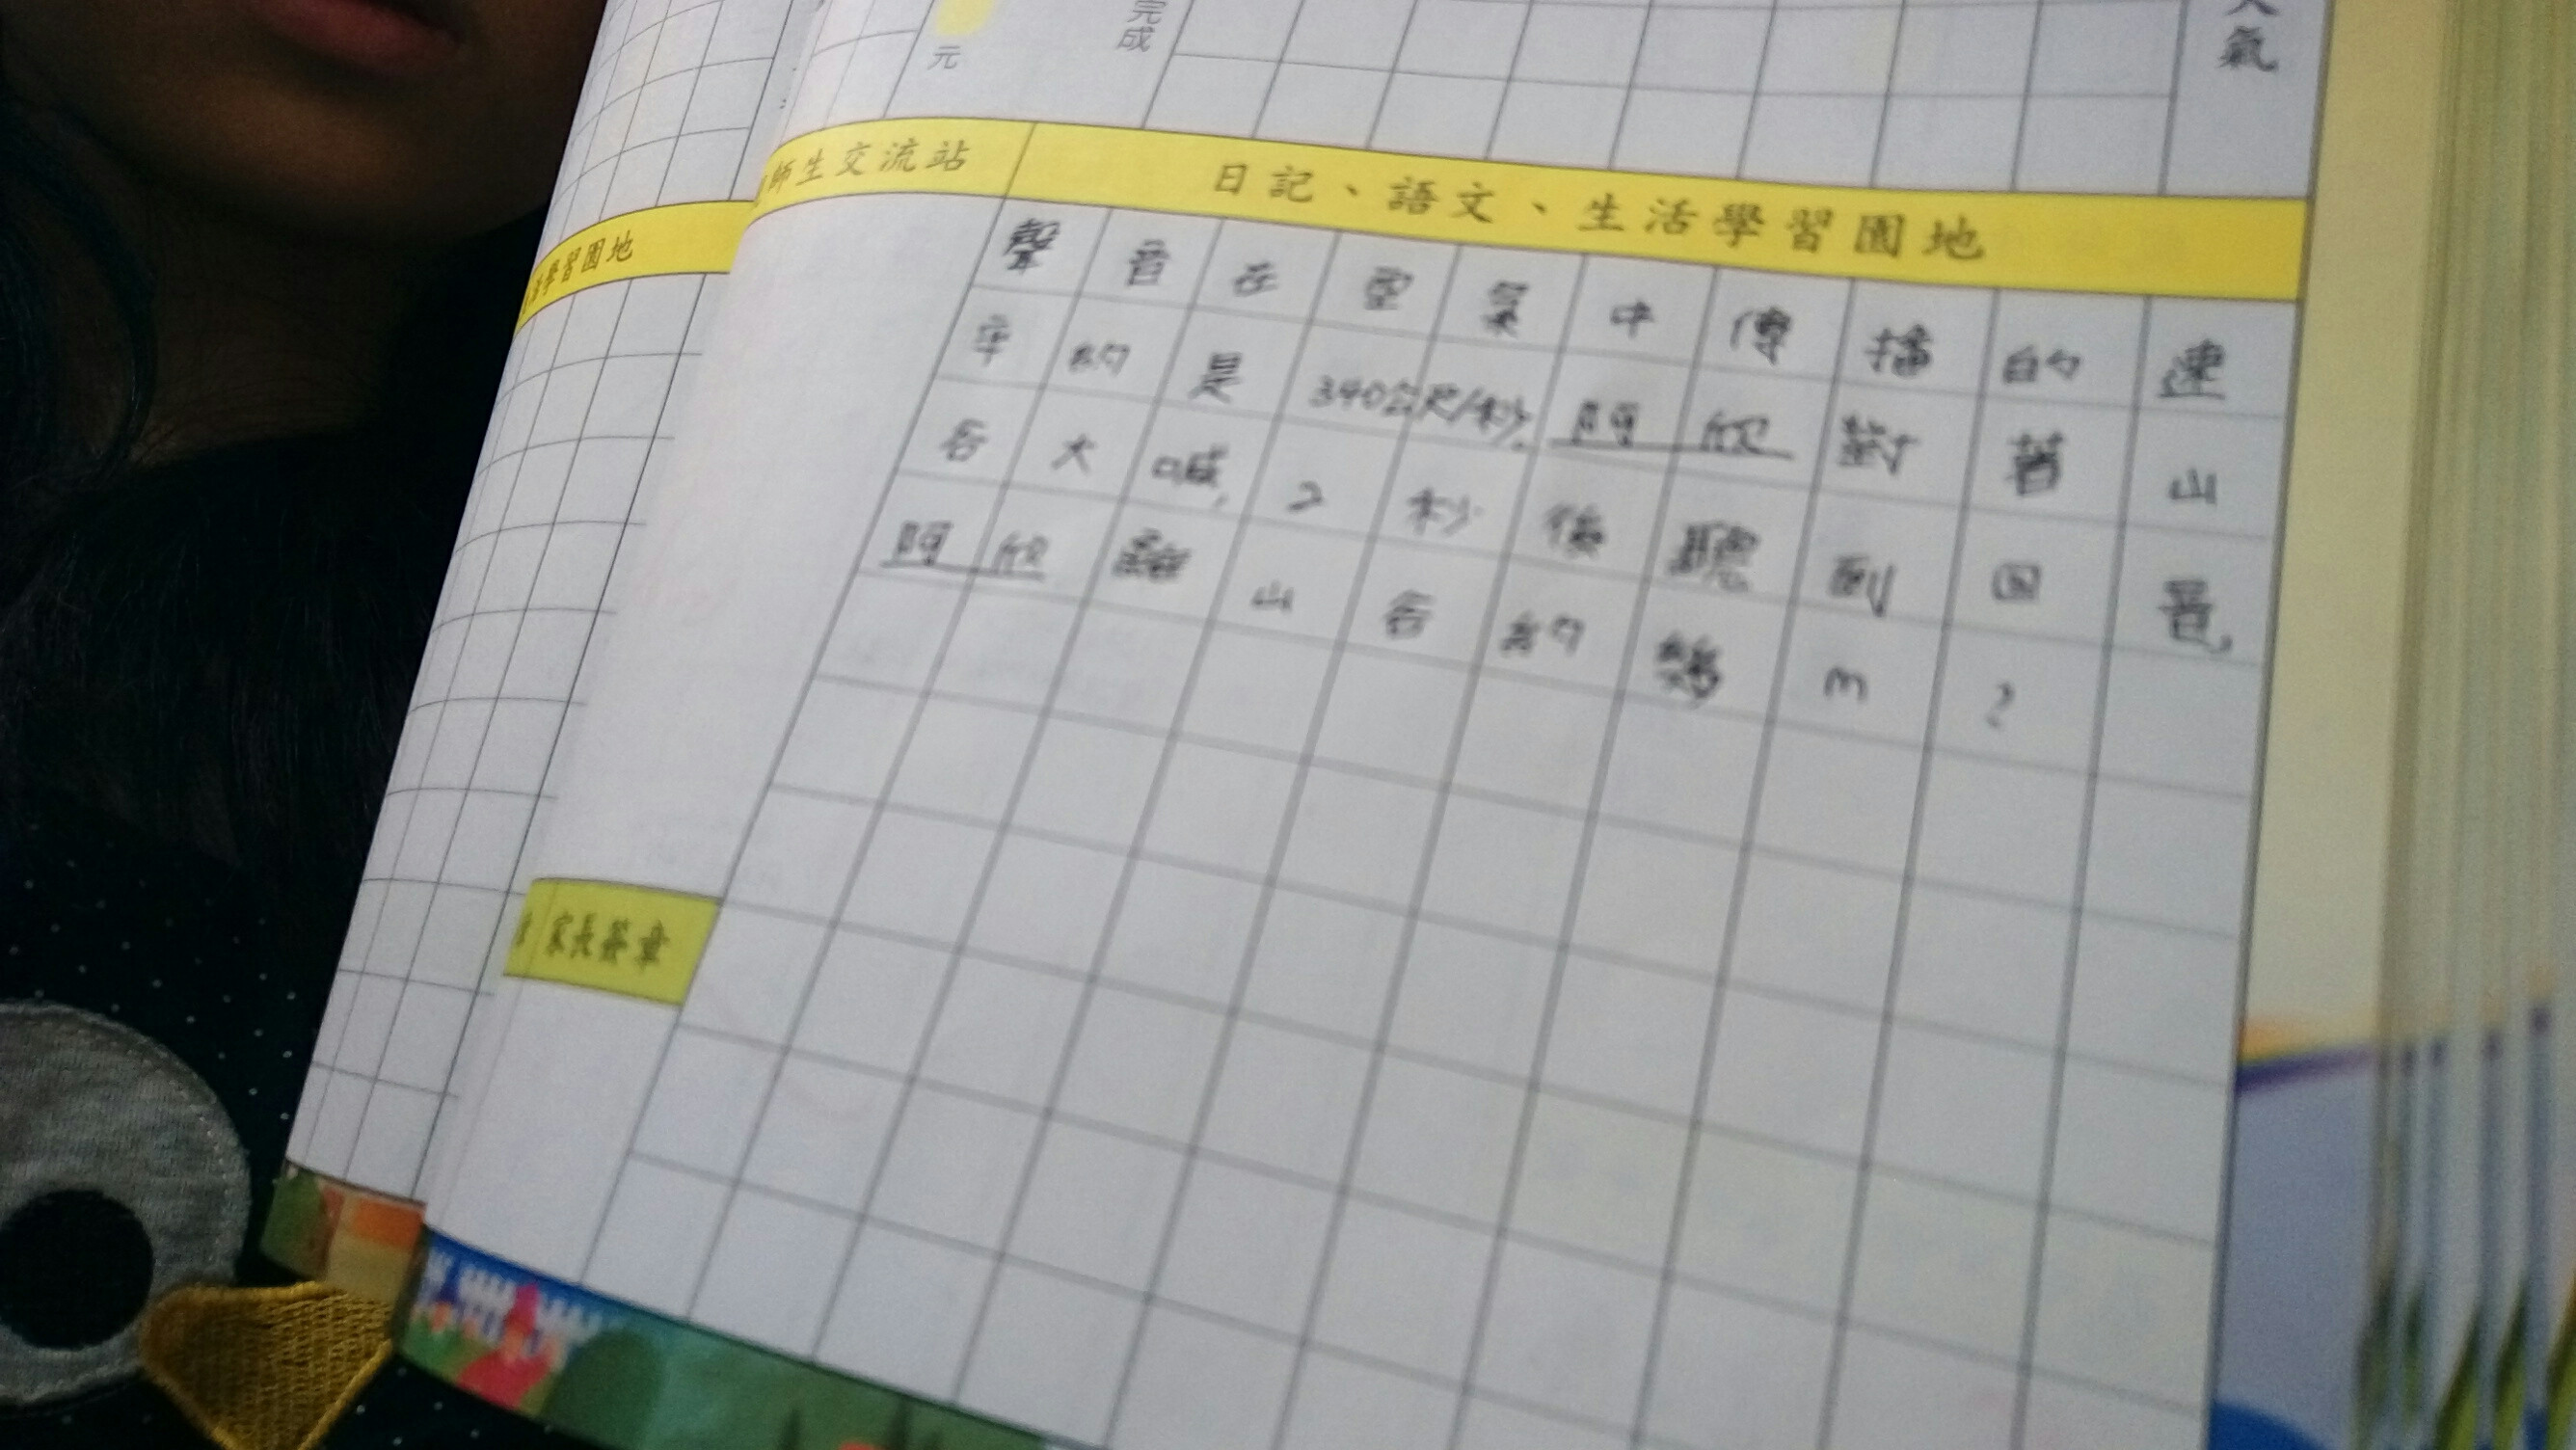 元
完成
天氣
師生交流站
日記、語文、生活學習園地
活學習園地
聲音在空氣中傳播的速
率約是340公尺/秒,阿欣對著山
谷大喊,2秒後聽到回音,
阿欣離山谷約幾m?
家長簽章